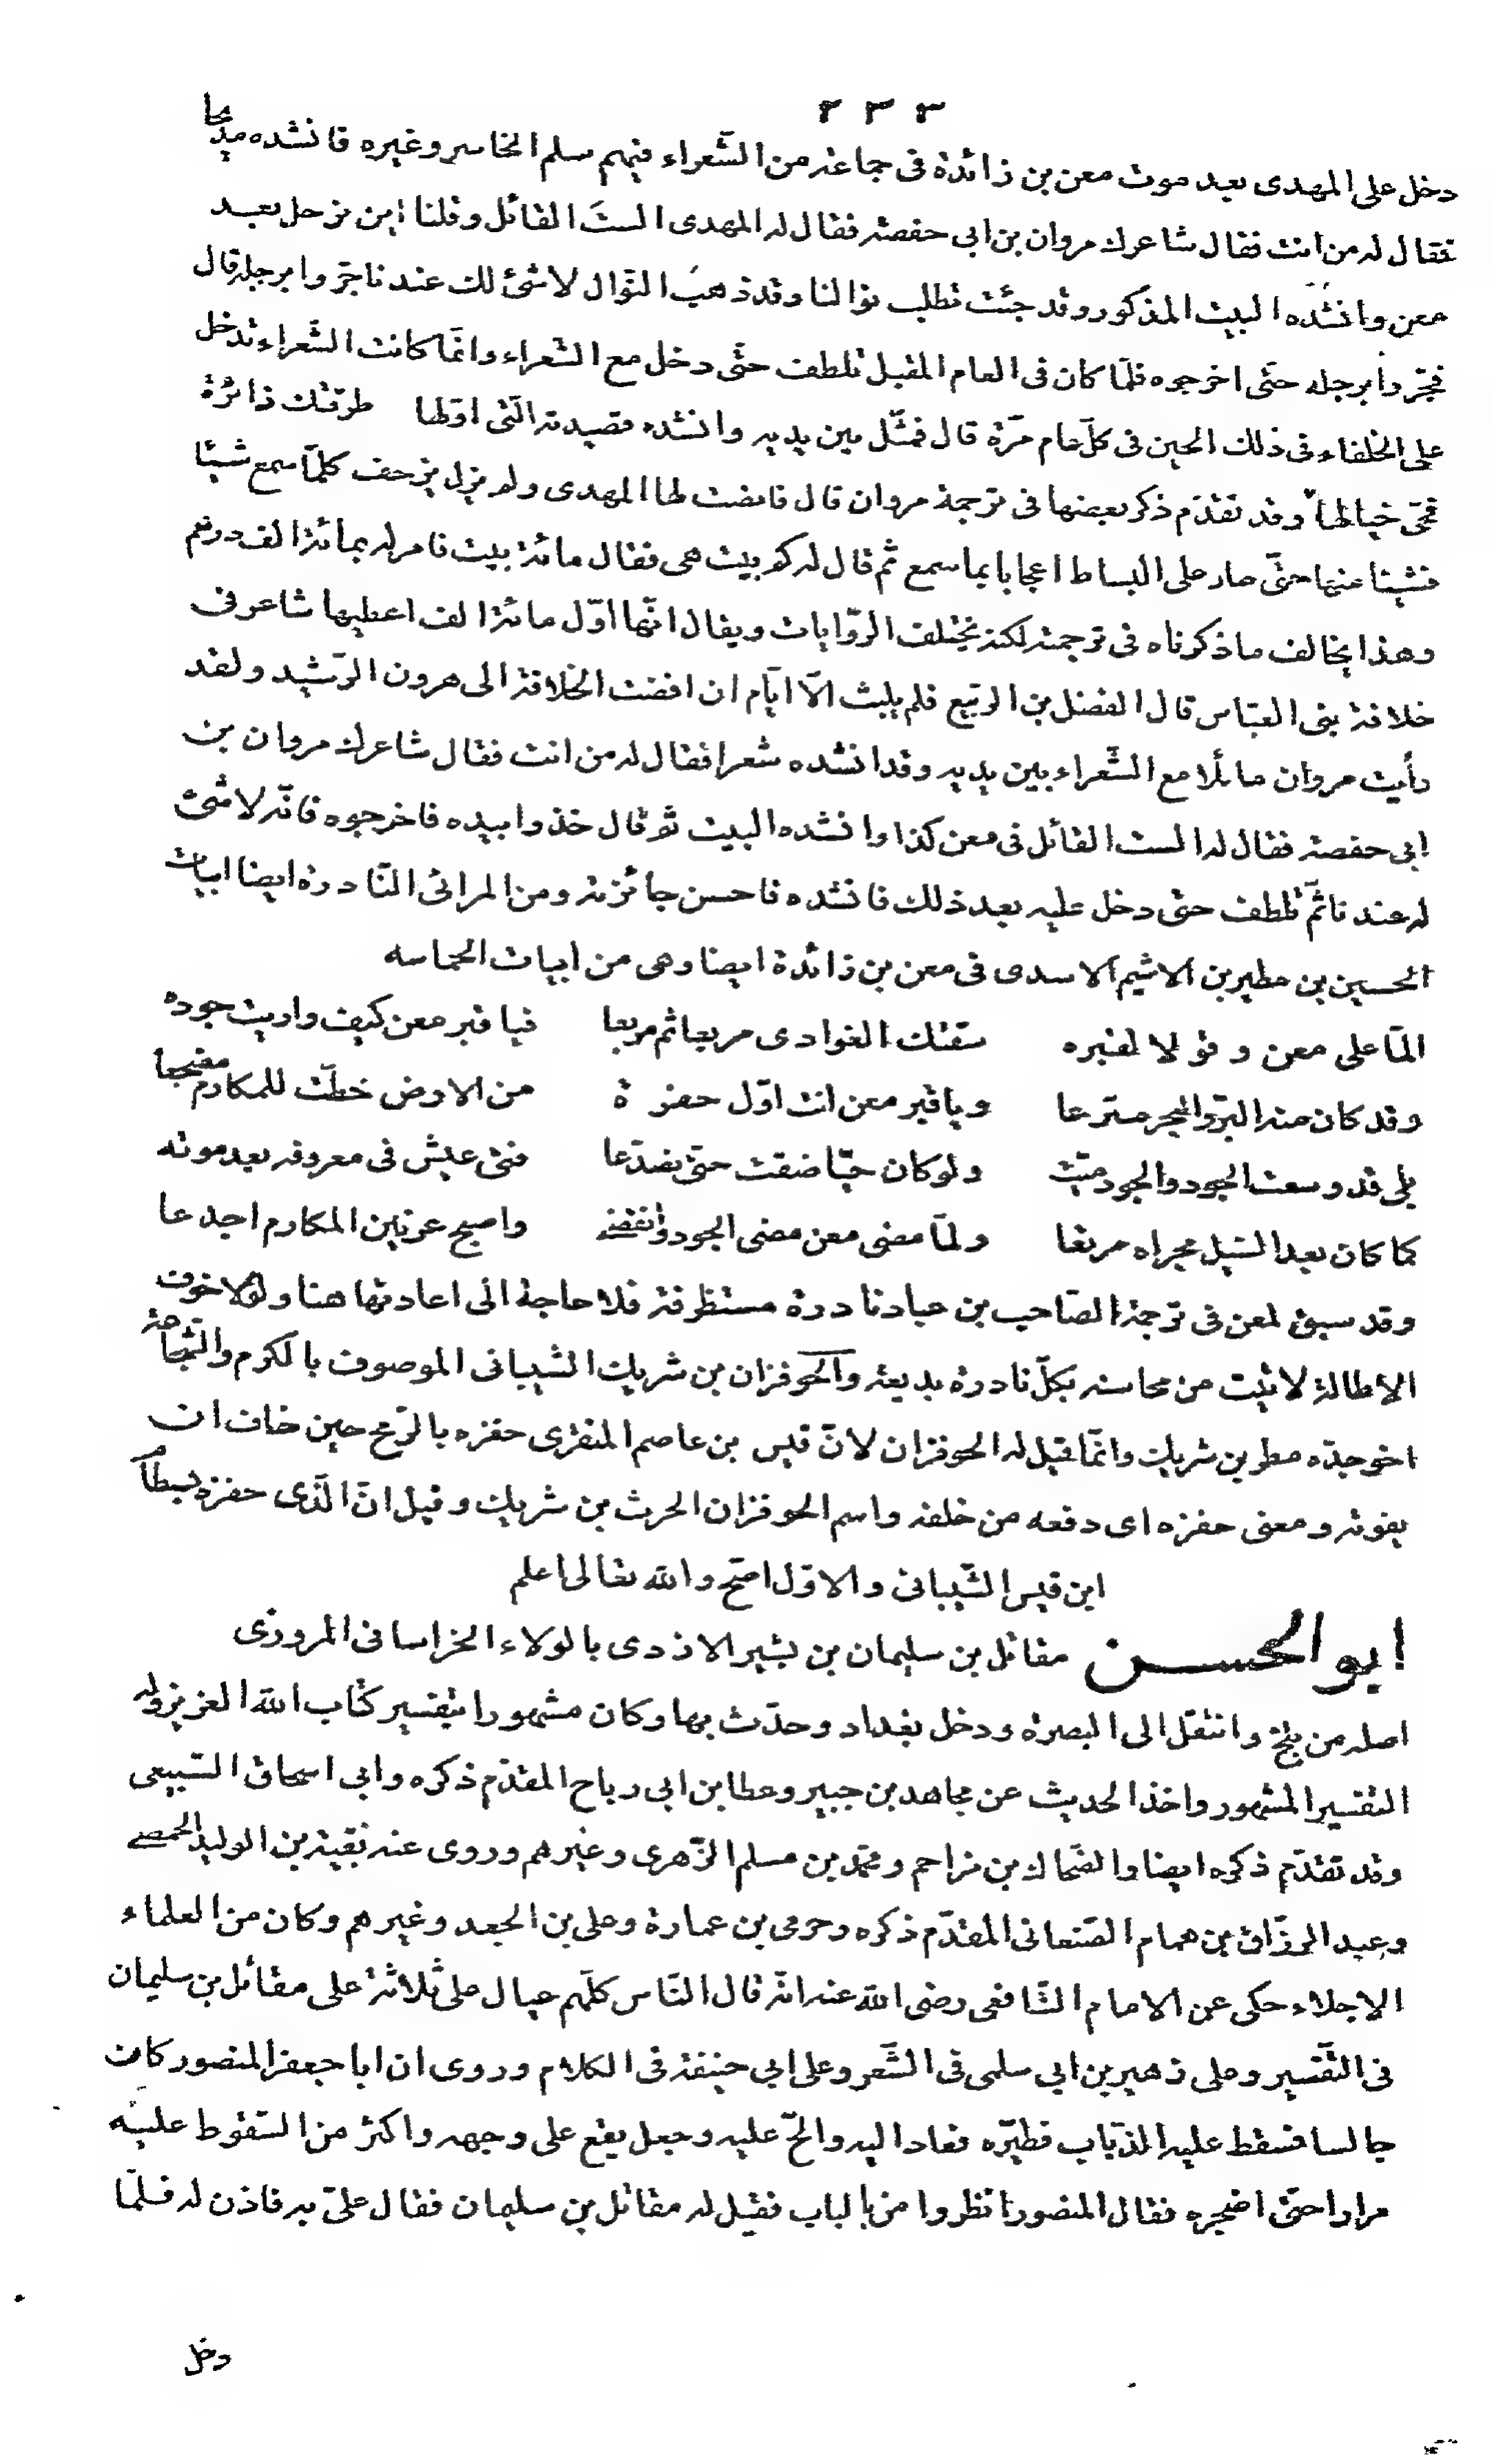 ٢٣٣
دخل على المهدى بعد موت معن بن زائدة فى جماعة من الشّعراء فيهم سلم الخاسر وغيره فانشده مديحا
فقال له من انت فقال شاعرك مروان بن ابى حفصة فقال له المهدى الستَ القائل وقلنا اين نرحل بعد
معن وانشده البيت المذكور وقد جئت تطلب نوالنا وقد ذهبَ النوال لا شئ لك عندنا جرّوا برجله قال
فجرّ وا برجله حتّى اخرجوه فلمّا كان فى العام المقبل تلطف حتّى دخل مع الشعراء وانّما كانت الشّعراء تدخل
على الخلفاء فى ذلك الحين فى كلّ عام مرّة قال فمثّل بين يديه وانشده قصيدته الّتى اوّلها طرقتك زائرة
فحىّ خيالها وقد تقدّم ذكر بعضها فى ترجمة مروان قال فانصت لها المهدى ولم يزل يزحف كلّما سمع شيئا
فشيئا منها حتّى صار على البساط اعجابا بما سمع ثم قال له كم بيت هى فقال مائة بيت فامر له بمائة الف درهم
وهذا يخالف ما ذكرناه فى ترجمته لكنه يختلف الروّايات ويقال انّها اوّل مائة الف اعطيها شاعر فى
خلافة بنى العبّاس قال الفضل بن الربيع فلم يلبث الّا ايّام ان افضت الخلافة الى هرون الرّشيد ولقد
رأيت مروان ماثلا مع الشّعراء بين يديه وقد انشده شعرا فقال له من انت فقال شاعرك مروان بن
ابى حفصة فقال له الست القائل فى معن كذا وانشده البيت ثم قال خذوا بيده فاخرجوه فانّه لا شئ
له عندنا ثمّ تلطف حتى دخل عليه بعد ذلك فانشده فاحسن جائزته ومن المراثى النّادرة ايضا ابيات
الحسين بن مطير بن الاشيم الاسدى فى معن بن زائدة ايضا وهى من ابيات الحماسه
المّا على معن وقولا لقبره سقتك الغوادى مربعا ثم مربعا فيا قبر معن كيف واريت جوده
وقد كان منه البرّ والبحر مترعا ويا قبر معن انت اوّل حفرة من الارض خطّت للمكارم مضجعا
بلى قد وسعت الجود والجود ميّت ولو كان حيّا ضقت حتّى تصدّعا فتى عيش فى معروفه بعد موته
كما كان بعد السّيل مجراه مرتعا ولمّا مضى معن مضى الجود وانقضى واصبح عرنين المكارم اجدعا
وقد سبق لمعن فى ترجمة الصّاحب بن عباد نادرة مستظرفة فلا حاجة الى اعادتها هنا ولولا خوف
الاطالة لاتيت من محاسنه بكلّ نادرة بديعة والحوفزان بن شريك الشيبانى الموصوف بالكرم والشّجاعة
اخو جدّه مطر بن شريك وانّما قيل له الحوفزان لانّ قيس بن عاصم المنقرى حفزه بالرّمح حين خاف ان
يفوته ومعنى حفزه اى دفعه من خلفه واسم الحوفزان الحرث بن شريك وقيل انّ الّذى حفزه بسطام
ابن قيس الشّيبانى والاوّل اصحّ والله تعالى اعلم
ابو الحسن مقاتل بن سليمان بن بشير الازدى بالولاء الخراسانى المروزى
اصله من بلخ وانتقل الى البصرة ودخل بغداد وحدّث بها وكان مشهورا بتفسير كتاب الله العزيز وله
التفسير المشهور واخذ الحديث عن مجاهد بن جبير وعطا بن ابى رباح المقدّم ذكره وابى اسحاق السّبيعى
وقد تقدّم ذكره ايضا والضحاك بن مزاحم ومحمّد بن مسلم الزّهرى وغيرهم وروى عنه بقية بن الوليد الحمصى
وعبد الرزّاق بن همام الصّنعانى المقدّم ذكره وحرمى بن عمارة وعلى بن الجعد وغيرهم وكان من العلماء
الاجلاء حكى عن الامام الشّافعى رضى الله عنه انّه قال النّاس كلّهم عيال على ثلاثة على مقاتل بن سليمان
فى التّفسير وعلى زهير بن ابى سلمى فى الشّعر وعلى ابى حنيفة فى الكلام وروى ان ابا جعفر المنصور كان
جالسا فسقط عليه الذّباب فطيّره فعاد اليه والحّ عليه وجعل يقع على وجهه واكثر من السّقوط عليه
مرارا حتّى اضجره فقال المنصور انظروا من بالباب فقيل له مقاتل بن سليمان فقال علىّ به فاذن له فلمّا
دخل